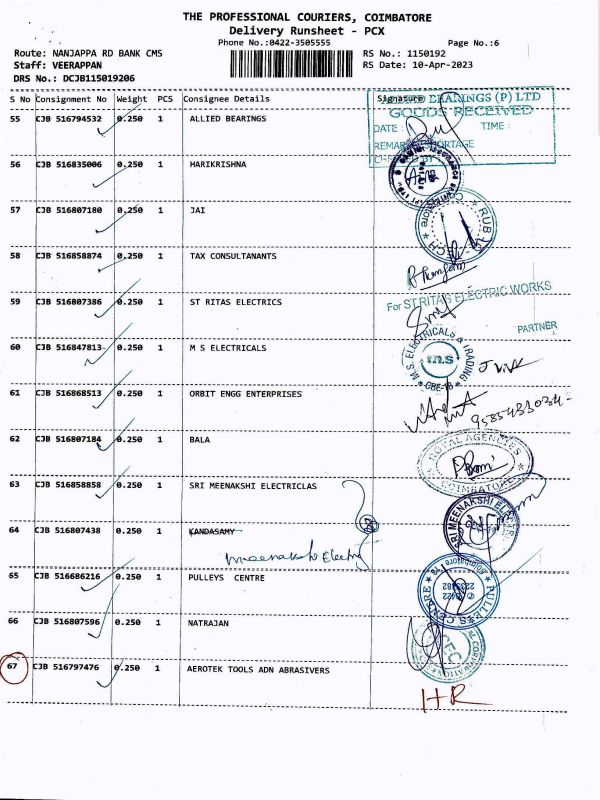 THE PROFESSIONAL COURIERS, COIMBATORE
Delivery Runsheet - PCX
Phone No.:0422-3505555
Page No.:6
Route: NANJAPPA RD BANK CMS
RS No.: 1150192
Staff: VEERAPPAN
RS Date: 10-Apr-2023
DRS No.: DCJB115019206
S No Consignment No Weight PCS Consignee Details Signature
BEARINGS (P) LTD
55 CJB 516794532 0.250 1 ALLIED BEARINGS
GOODS RECEIVED
DATE : TIME :
REMARKS SHORTAGE
56 CJB 516835006 0.250 1 HARIKRISHNA
57 CJB 516807180 0.250 1 JAI
58 CJB 516858874 0.250 1 TAX CONSULTANANTS
59 CJB 516807386 0.250 1 ST RITAS ELECTRICS
For ST RITAS ELECTRIC WORKS
PARTNER
60 CJB 516847813 0.250 1 M S ELECTRICALS
M.S. ELECTRICALS & TRADING
m.s
CBE-18
61 CJB 516868513 0.250 1 ORBIT ENGG ENTERPRISES
62 CJB 516807184 0.250 1 BALA
ROYAL AGENCIES
COIMBATORE
63 CJB 516858858 0.250 1 SRI MEENAKSHI ELECTRICLAS
SRI MEENAKSHI
64 CJB 516807438 0.250 1 KANDASAMY
Meenakshi Electri
65 CJB 516686216 0.250 1 PULLEYS CENTRE
PULLEYS CENTRE
66 CJB 516807596 0.250 1 NATRAJAN
67 CJB 516797476 0.250 1 AEROTEK TOOLS ADN ABRASIVERS
HR